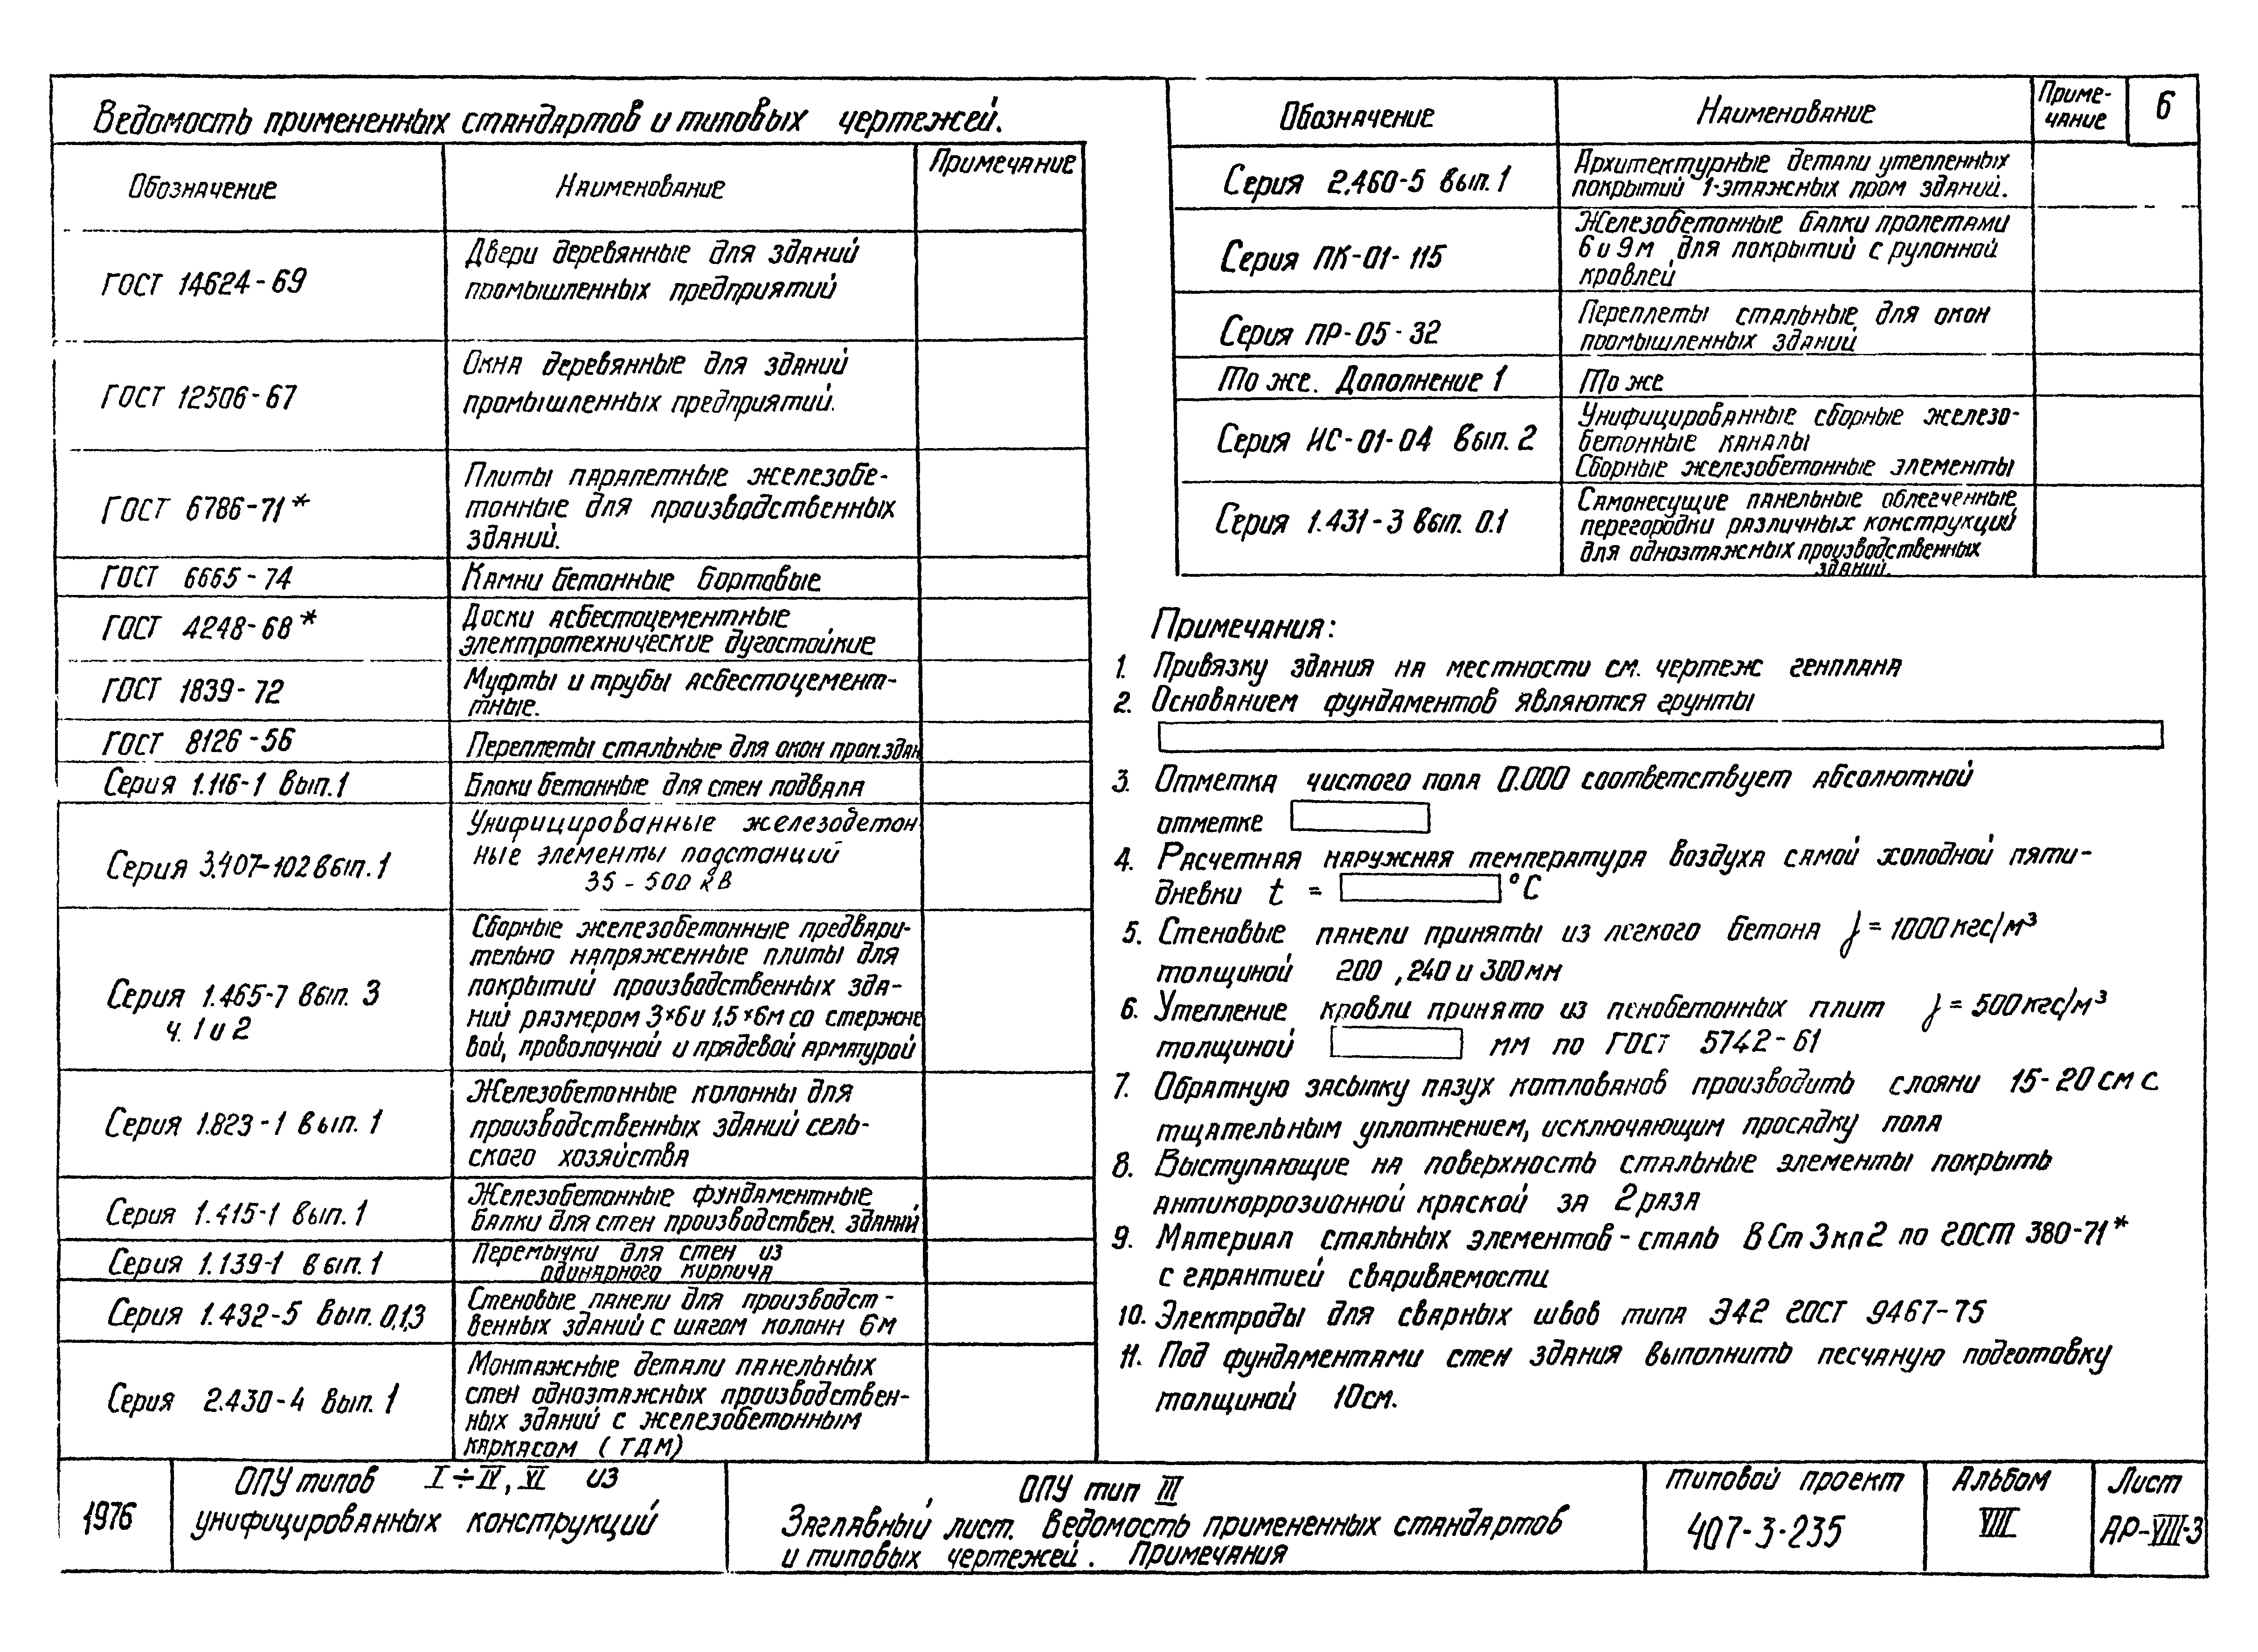 Ведомость примененных стандартов и типовых чертежей.
Обозначение Наименование Примечание
ГОСТ 14624-69 Двери деревянные для зданий
промышленных предприятий
ГОСТ 12506-67 Окна деревянные для зданий
промышленных предприятий.
ГОСТ 6786-71* Плиты парапетные железобе-
тонные для производственных
зданий.
ГОСТ 6665-74 Камни бетонные бортовые
ГОСТ 4248-68* Доски асбестоцементные
электротехнические дугостойкие
ГОСТ 1839-72 Муфты и трубы асбестоцемент-
тные.
ГОСТ 8126-56 Переплеты стальные для окон пром.здан
Серия 1.116-1 вып.1 Блоки бетонные для стен подвала
Серия 3.407-102 вып.1 Унифицированные железобетон
ные элементы подстанций
35-500 кВ
Серия 1.465-7 вып. 3
ч. 1 и 2
Сборные железобетонные предвари-
тельно напряженные плиты для
покрытий производственных зда-
ний размером 3×6 и 1.5×6м со стержне
вой, проволочной и прядевой арматурой
Серия 1.823-1 вып. 1 Железобетонные колонны для
производственных зданий сель-
ского хозяйства
Серия 1.415-1 вып.1 Железобетонные фундаментные
балки для стен производствен. зданий
Серия 1.139-1 вып.1 Перемычки для стен из
одинарного кирпича
Серия 1.432-5 вып. 0,1,3 Стеновые панели для производст-
венных зданий с шагом колонн 6м
Серия 2.430-4 вып. 1 Монтажные детали панельных
стен одноэтажных производствен-
ных зданий с железобетонным
каркасом (ТДМ)
Обозначение Наименование Приме-
чание
6
Серия 2.460-5 вып.1 Архитектурные детали утепленных
покрытий 1-этажных пром зданий.
Серия ПК-01-115 Железобетонные балки пролетами
6 и 9м для покрытий с рулонной
кровлей
Серия ПР-05-32 Переплеты стальные для окон
промышленных зданий
То же. Дополнение 1 То же
Серия ИС-01-04 вып. 2 Унифицированные сборные железо-
бетонные каналы
Сборные железобетонные элементы
Серия 1.431-3 вып. 0.1 Самонесущие панельные облегченные
перегородки различных конструкций
для одноэтажных производственных
зданий.
Примечания:
1. Привязку здания на местности см. чертеж генплана
2. Основанием фундаментов являются грунты
3. Отметка чистого пола 0.000 соответствует абсолютной
отметке
4. Расчетная наружная температура воздуха самой холодной пяти-
дневки t = °С
5. Стеновые панели приняты из легкого бетона γ = 1000 кгс/м³
толщиной 200, 240 и 300 мм
6. Утепление кровли принято из пенобетонных плит γ = 500 кгс/м³
толщиной мм по ГОСТ 5742-61
7. Обратную засыпку пазух котлованов производить слоями 15-20 см с
тщательным уплотнением, исключающим просадку пола
8. Выступающие на поверхность стальные элементы покрыть
антикоррозионной краской за 2 раза
9. Материал стальных элементов - сталь В Ст 3 кп 2 по ГОСТ 380-71*
с гарантией свариваемости
10. Электроды для сварных швов типа Э42 ГОСТ 9467-75
11. Под фундаментами стен здания выполнить песчаную подготовку
толщиной 10см.
1976
ОПУ типов I÷IV, VI из
унифицированных конструкций
ОПУ тип III
Заглавный лист. Ведомость примененных стандартов
и типовых чертежей. Примечания
типовой проект
407-3-235
Альбом
VIII
Лист
АР-VIII-3